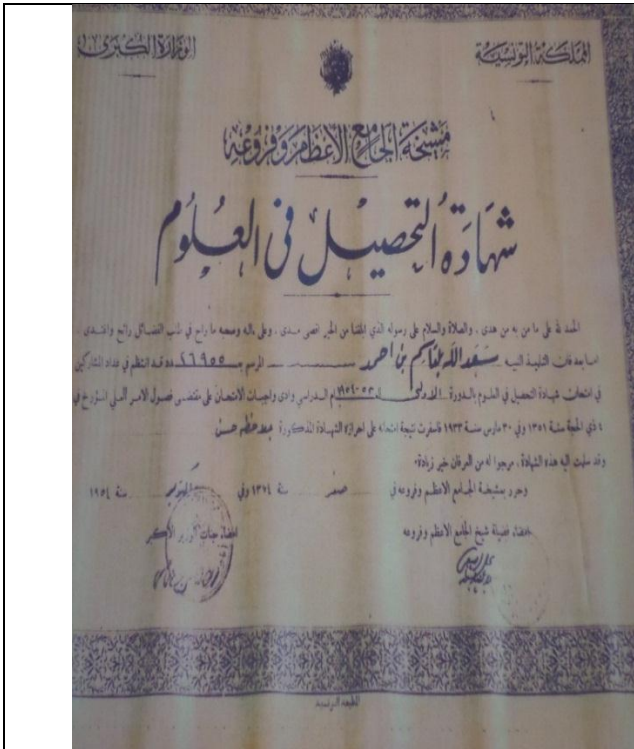 المملكة التونسية
الوزارة الكبرى
مشيخة الجامع الأعظم وفروعه
شهادة التحصيل في العلوم
الحمد لله على ما من به من هدى ، والصلاة والسلام على رسوله الذي ابلغنا من الخير اقصى مدى ، وعلى ءاله وصحبه ما راح في شعب الفضائل رائح واغتدى ،
اما بعد فان التلميذ النبيه سعد الله بلقاسم بن احمد المرسم بـ 26955 قد انتظم في عداد المشاركين
في امتحان شهادة التحصيل في العلوم بالدورة الاولى الدراسي وادى واجبات الامتحان على مقتضى فصول الامر العلي المؤرخ في
4 ذي الحجة سنة 1351 وفي 30 مارس سنة 1933 فاسفرت نتيجة امتحانه على احرازه الشهادة المذكورة بملاحظة حسن
وقد سلمت اليه هذه الشهادة ، مرجوا له من العرفان خير زيادة
وحرر بمشيخة الجامع الاعظم وفروعه في صفر سنة 1374 وفي اكتوبر سنة 1954
امضاء فضيلة شيخ الجامع الاعظم وفروعه
امضاء جناب الوزير الاكبر
المطبعة الرسمية